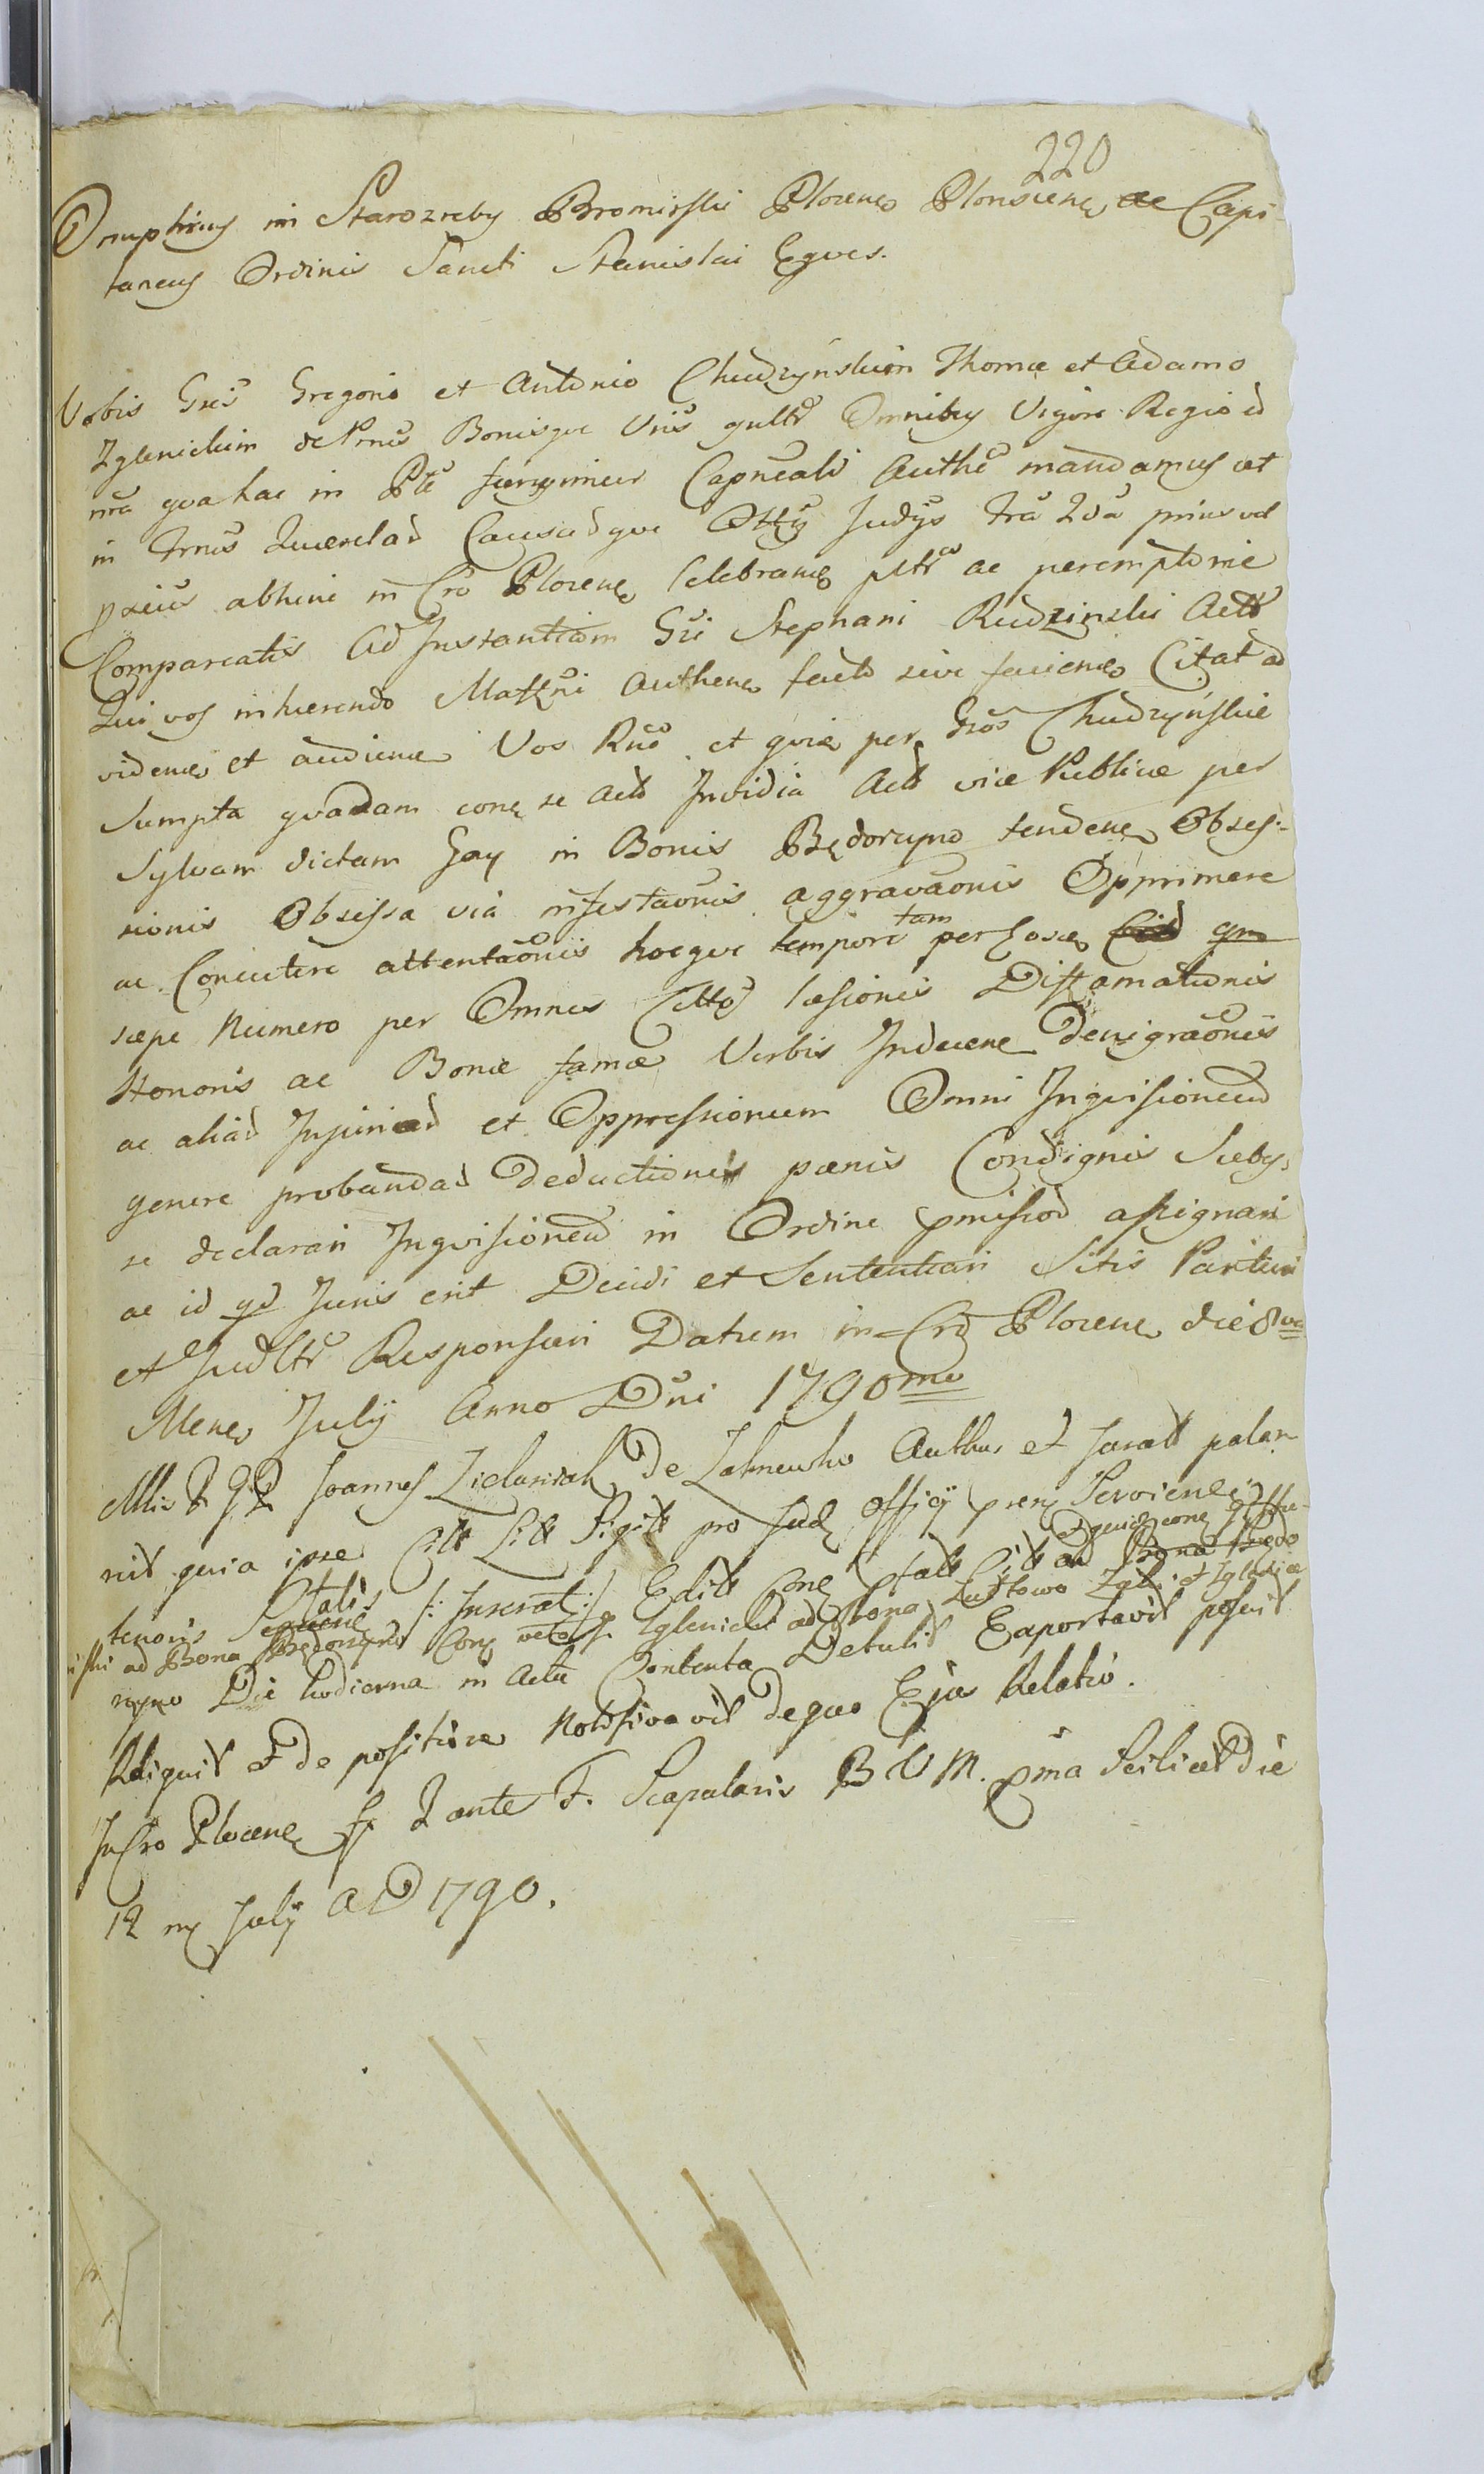 220
Onuphrius in Starozreby Bromirski Plocenᵉ Plonscenᵉ ac Capi-
taneus Ordinis Sancti Stanislai Eques.
Vobis Gsis Gregorio et Antonio Chudzynskim Thomæ et Adamo
Zglenickim de Prnis Bonisque Vris gnltr Omnibus Vigore Regio ed
nra qva hac in Pte fungimur Capneali Authe mandamus ut
in Trnis Querelad Causadque Offÿ Judÿs fra 2da prius vel
pseius abhinc in Cro Plocenᵉ Celebranᵉ pltr ac peremptorie
Compareatis Ad Instantiam Gsi Stephani Rudzinski Actt
Qui vos inhærendo Mattni Authenᵉ facto sive faciend Citat ad
videnᵉ et audienᵉ Vos Rno et quia per Gsos Chudzyńskie
Sumpta quadam conᵉ se Actt Invidia Actt viæ Publicæ per
Sylvam dictam Gay in Bonis Będorzyno tendenᵉ Obses-
sionis Obsessa via infestaonis aggravaonis Opprimere
ac Concutere attentaonis hocque tempore tam per Gosce Citt qm
sæpe Numero per Omnes Cittos læsionis Diffamationis
Honoris ac Bonæ famæ Verbis Indecenᵉ denigraonis
ac aliad Injuriad et Oppressionum Omni Inqvisioneud
genere probandad Deductionis pænis Condignis Sub
se declarari Inqvisioneud in Ordine pmissod assignari
ac id qd Juris erit Decidi et Sententiari Sitis Parituri
et Judltr Responsuri Datum in Cro Plocenᵉ die 8va
Menᵉ Julÿ Anno Dni 1790mo
Mlis R G R Joannes Zielaniak De Zakrzewko Authus et Juratt palam
nit quia ipse Citt Litt Sigitt pro Jud Officÿ pren Servienᵉ
tenoris Sequenᵉ Talis /: Inserat :/ Editt Conᵉ ptatt Citt ad Bona Będo
et quid conᵉ Gsᵉ Chu-
iski ad Bona Będorzyno Conᵉ veto G. Zglenicki ad Bona Luszewo
rzyno Die hodierna in Actu Contenta Detulit Exportavit posuit
Reliquit et de positione Notificavit de quo Ejus Relatio.
In Cro Plocenᵉ f. 2 ante F. Scapularis B V M. pma Scilicet Die
12 mᵉ Julÿ A D 1790.